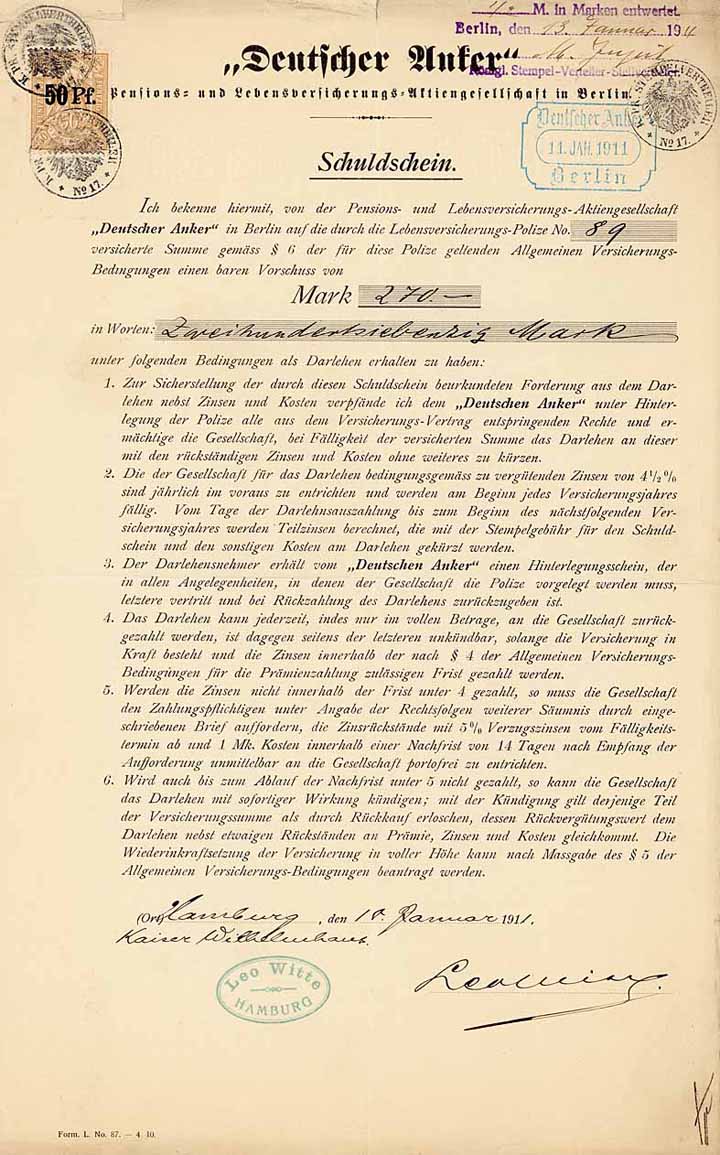 1/2 M. in Marken entwertet.
Berlin, den 13. Januar 1911
Königl. Stempel-Verteiler-Stelle
50 Pf.
„Deutscher Anker“
Pensions- und Lebensversicherungs-Aktiengesellschaft in Berlin.
No 17.
No 17.
Deutscher Anker
11. JAN. 1911
Berlin
Schuldschein.
Ich bekenne hiermit, von der Pensions- und Lebensversicherungs-Aktiengesellschaft
„Deutscher Anker“ in Berlin auf die durch die Lebensversicherungs-Polize No. 89
versicherte Summe gemäss § 6 der für diese Polize geltenden Allgemeinen Versicherungs-
Bedingungen einen baren Vorschuss von
Mark 270.—
in Worten: Zweihundertsiebenzig Mark
unter folgenden Bedingungen als Darlehen erhalten zu haben:
1. Zur Sicherstellung der durch diesen Schuldschein beurkundeten Forderung aus dem Dar-
lehen nebst Zinsen und Kosten verpfände ich dem „Deutschen Anker“ unter Hinter-
legung der Polize alle aus dem Versicherungs-Vertrag entspringenden Rechte und er-
mächtige die Gesellschaft, bei Fälligkeit der versicherten Summe das Darlehen an dieser
mit den rückständigen Zinsen und Kosten ohne weiteres zu kürzen.
2. Die der Gesellschaft für das Darlehen bedingungsgemäss zu vergütenden Zinsen von 4½%
sind jährlich im voraus zu entrichten und werden am Beginn jedes Versicherungsjahres
fällig. Vom Tage der Darlehnsauszahlung bis zum Beginn des nächstfolgenden Ver-
sicherungsjahres werden Teilzinsen berechnet, die mit der Stempelgebühr für den Schuld-
schein und den sonstigen Kosten am Darlehen gekürzt werden.
3. Der Darlehensnehmer erhält vom „Deutschen Anker“ einen Hinterlegungsschein, der
in allen Angelegenheiten, in denen der Gesellschaft die Polize vorgelegt werden muss,
letztere vertritt und bei Rückzahlung des Darlehens zurückzugeben ist.
4. Das Darlehen kann jederzeit, indes nur im vollen Betrage, an die Gesellschaft zurück-
gezahlt werden, ist dagegen seitens der letzteren unkündbar, solange die Versicherung in
Kraft besteht und die Zinsen innerhalb der nach § 4 der Allgemeinen Versicherungs-
Bedingungen für die Prämienzahlung zulässigen Frist gezahlt werden.
5. Werden die Zinsen nicht innerhalb der Frist unter 4 gezahlt, so muss die Gesellschaft
den Zahlungspflichtigen unter Angabe der Rechtsfolgen weiterer Säumnis durch einge-
schriebenen Brief auffordern, die Zinsrückstände mit 5% Verzugszinsen vom Fälligkeits-
termin ab und 1 Mk. Kosten innerhalb einer Nachfrist von 14 Tagen nach Empfang der
Aufforderung unmittelbar an die Gesellschaft portofrei zu entrichten.
6. Wird auch bis zum Ablauf der Nachfrist unter 5 nicht gezahlt, so kann die Gesellschaft
das Darlehen mit sofortiger Wirkung kündigen; mit der Kündigung gilt derjenige Teil
der Versicherungssumme als durch Rückkauf erloschen, dessen Rückvergütungswert dem
Darlehen nebst etwaigen Rückständen an Prämie, Zinsen und Kosten gleichkommt. Die
Wiederinkraftsetzung der Versicherung in voller Höhe kann nach Massgabe des § 5 der
Allgemeinen Versicherungs-Bedingungen beantragt werden.
(Ort) Hamburg, den 10. Januar 1911.
Kaiser Wilhelmhaus.
Leo Witte
HAMBURG
Form. L. No. 87. — 4. 10.